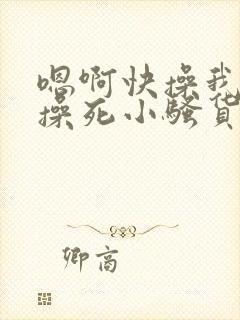 嗯啊快操我
操死小骚货
卿高